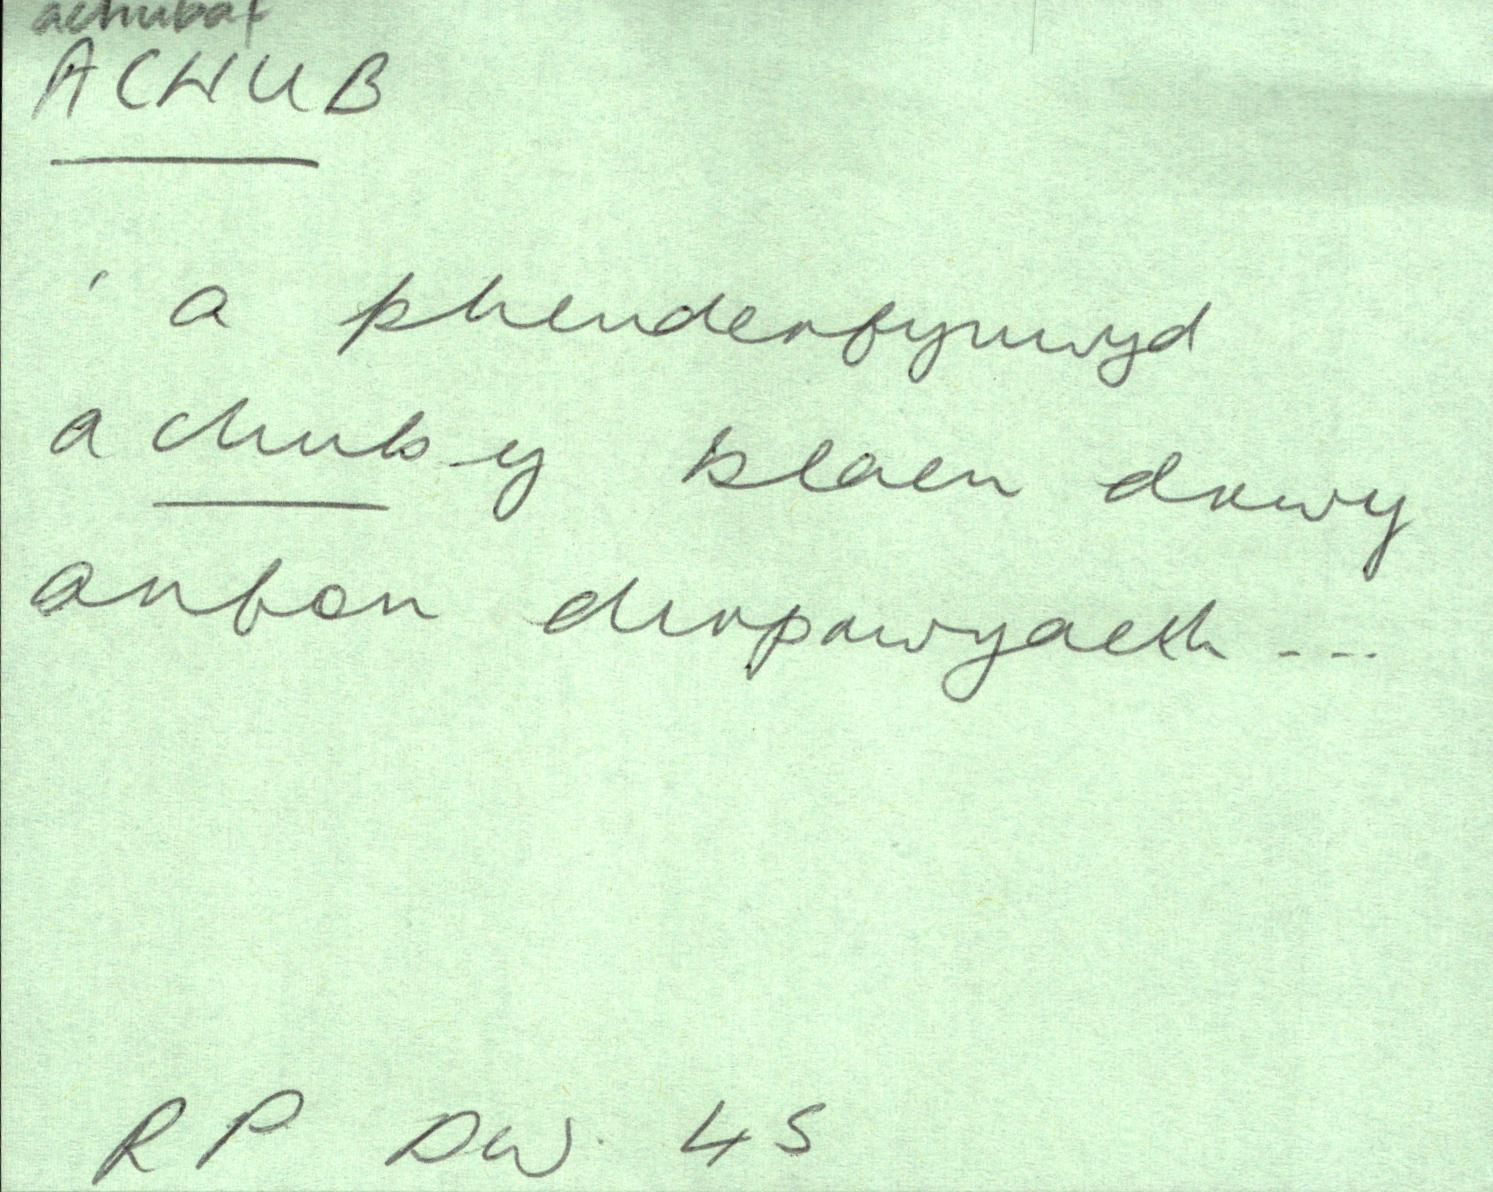 achubaf
ACHUB
' a phenderfynwyd
achub y blaen drwy
anfon dirprwyaeth ....
RP DW. 45